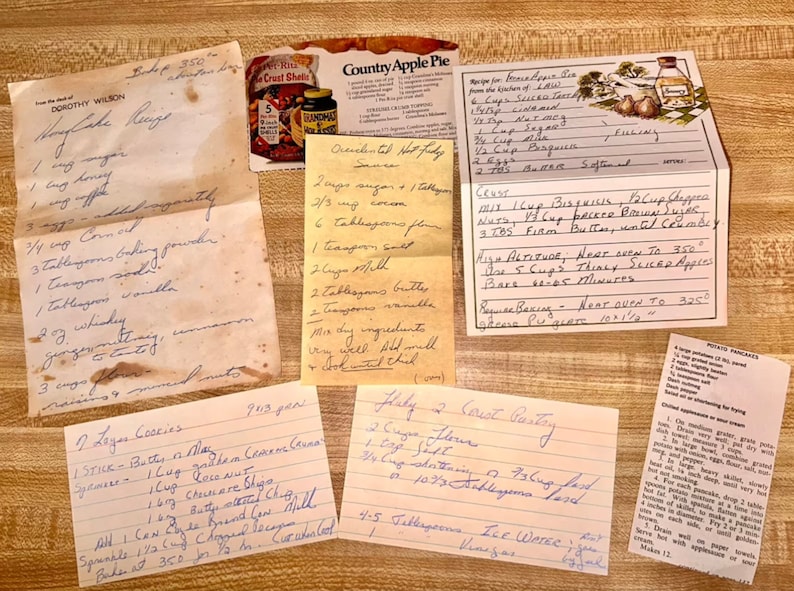 Bake @ 350°
from the desk of
DOROTHY WILSON
Honey Cake Recipe
1 cup sugar
1 cup honey
1 cup coffee
3 eggs - added separately
3/4 cup Corn oil
3 Tablespoons baking powder
1 teaspoon soda
1 teaspoon vanilla
2 oz whiskey
ginger, nutmeg, cinnamon
to taste
3 cups flour
raisins & minced nuts
Pet-Ritz
Crust Shells
5
9-inch
GRANDMA'S
MOLASSES
Country Apple Pie
STREUSEL CRUMB TOPPING
Occidental Hot Fudge
Sauce
2 cups sugar + 1 tablespoon
2/3 cup cocoa
6 tablespoons flour
1 teaspoon salt
2 Cups Milk
2 Tablespoons butter
2 Teaspoons vanilla
Mix dry ingredients
very well. Add milk
& cook until thick
(over)
Recipe for: Potato Apple Pie
from the kitchen of: LAW
6 Cups Sliced
1/4 Tsp Nutmeg
1 Cup Sugar
3/4 Cup Milk
1/2 Cup Bisquick
FILLING
2 Eggs
2 TBS Butter Softened
serves:
CRUST
Mix 1 Cup Bisquick, 1/2 Cup Chopped
Nuts, 1/3 Cup Packed Brown Sugar
3 TBS Firm Butter, until Crumbly
High Altitude, Heat oven to 350°
Use 5 Cups Thinly Sliced Apples
Bake 60-65 Minutes
Regular Baking - Heat oven to 325°
grease Pie plate 10x1 1/2"
7 Layer Cookies
9x13 pan
1 STICK - Butter or Marg
Sprinkle - 1 Cup graham Cracking Crumbs
1 Cup Coconut
1 6oz Chocolate Chips
1 6oz Butterscotch Chips
Add 1 CAN Eagle Brand Con Milk
Sprinkle 1 1/2 Cup Chopped Pecans
Bake at 350 for 1/2 hr Cut when Cool
Flaky 2 Crust Pastry
2 Cups Flour
1 tsp Salt
3/4 Cup shortening or 2/3 Cup lard
or 10 2/3 Tablespoons lard
4-5 Tablespoons ICE WATER
1 Vinegar
POTATO PANCAKES
4 large potatoes (2 lb), pared
1/4 cup grated onion
2 eggs, slightly beaten
2 tablespoons flour
3/4 teaspoon salt
Dash nutmeg
Dash pepper
Salad oil or shortening for frying
Chilled applesauce or sour cream
1. On medium grater, grate potatoes.
Drain very well; pat dry with
towel; measure 3 cups.
2. In large bowl, combine grated
potato with onion, eggs, flour, salt, nutmeg,
and pepper.
3. In large, heavy skillet, slowly
heat oil, 1/8 inch deep, until very hot
but not smoking.
4. For each pancake, drop 2 tablespoons
potato mixture at a time into
hot fat. With spatula, flatten against
bottom of skillet, to make a pancake
4 inches in diameter. Fry 2 or 3 minutes
on each side, or until golden-
brown.
5. Drain well on paper towels.
Serve hot with applesauce or sour
cream.
Makes 12.